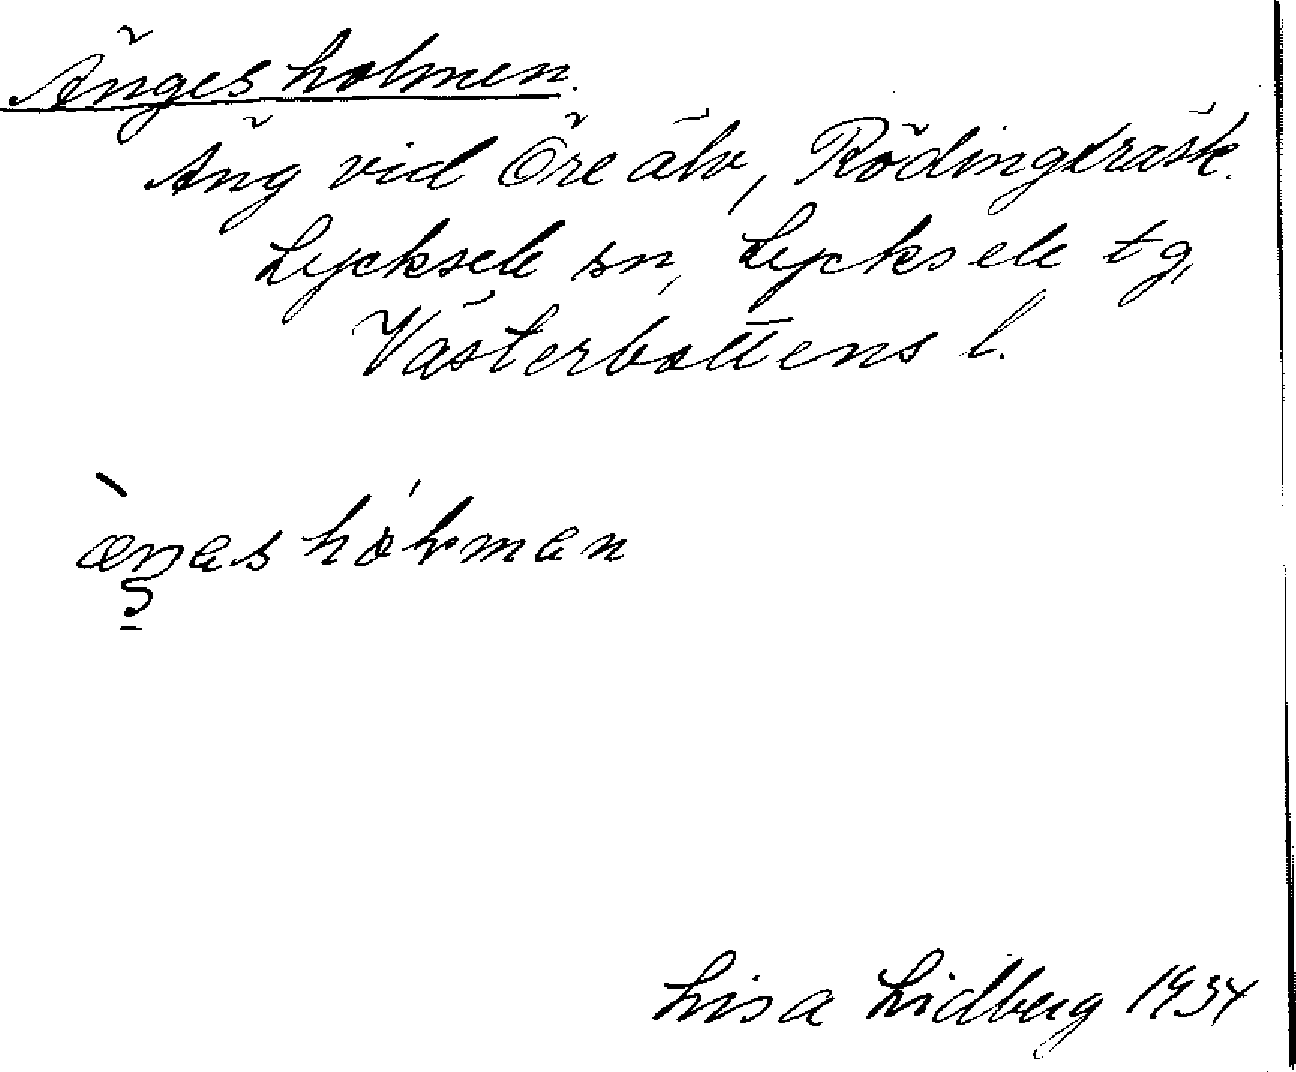 Ängesholmen.
Äng vid Öre älv, Rödingträsk.
Lycksele sn, Lycksele tg,
Västerbottens l.
Lisa Lidberg 1934